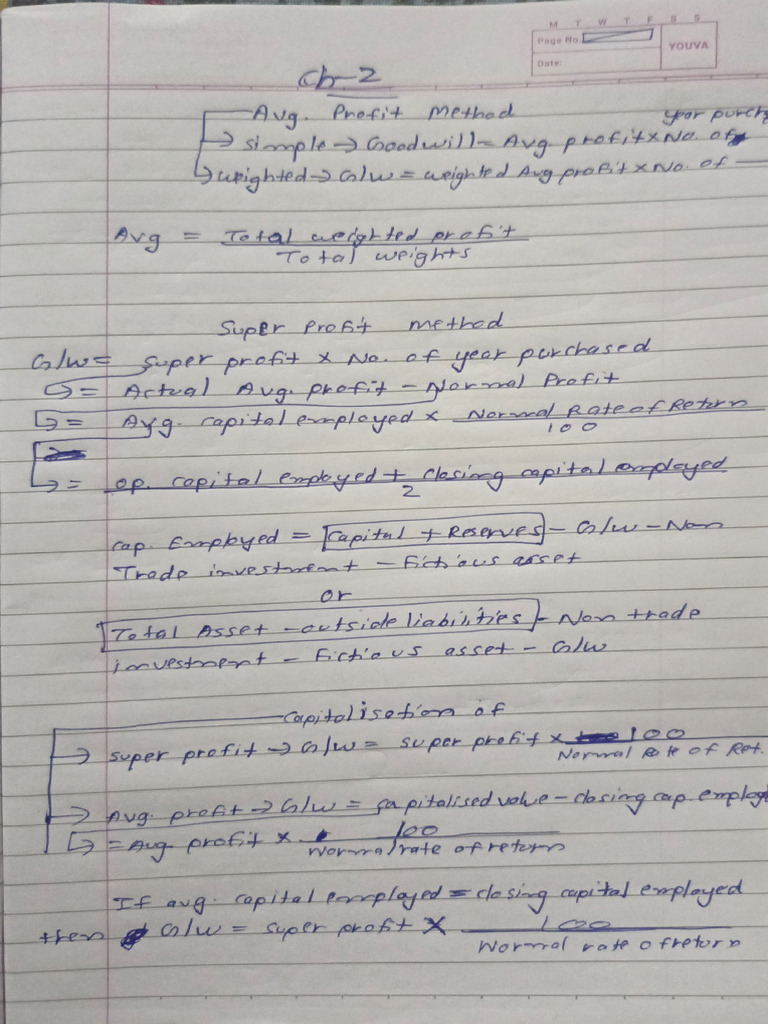 M T W T F S S
Page No.
YOUVA
Date:
Ch-2
Avg. Profit Method
year purch
simple → Goodwill = Avg. profit × No. of
weighted → G/w = weighted Avg profit × No. of —
Avg = Total weighted profit
Total weights
Super Profit Method
G/w = super profit × No. of year purchased
= Actual Avg. profit - Normal Profit
= Avg. capital employed × Normal Rate of Return
100
= op. capital employed + closing capital employed
2
cap. Employed = [Capital + Reserves] - G/w - Non
Trade investment - Fictious asset
or
[Total Asset - outside liabilities] - Non trade
investment - Fictious asset - G/w
Capitalisation of
→ super profit → G/w = super profit × 100
Normal Rate of Ret.
→ Avg. profit → G/w = capitalised value - closing cap. employ
= Avg profit × 100
Normal rate of return
If avg. capital employed = closing capital employed
then G/w = super profit × 100
Normal rate of return